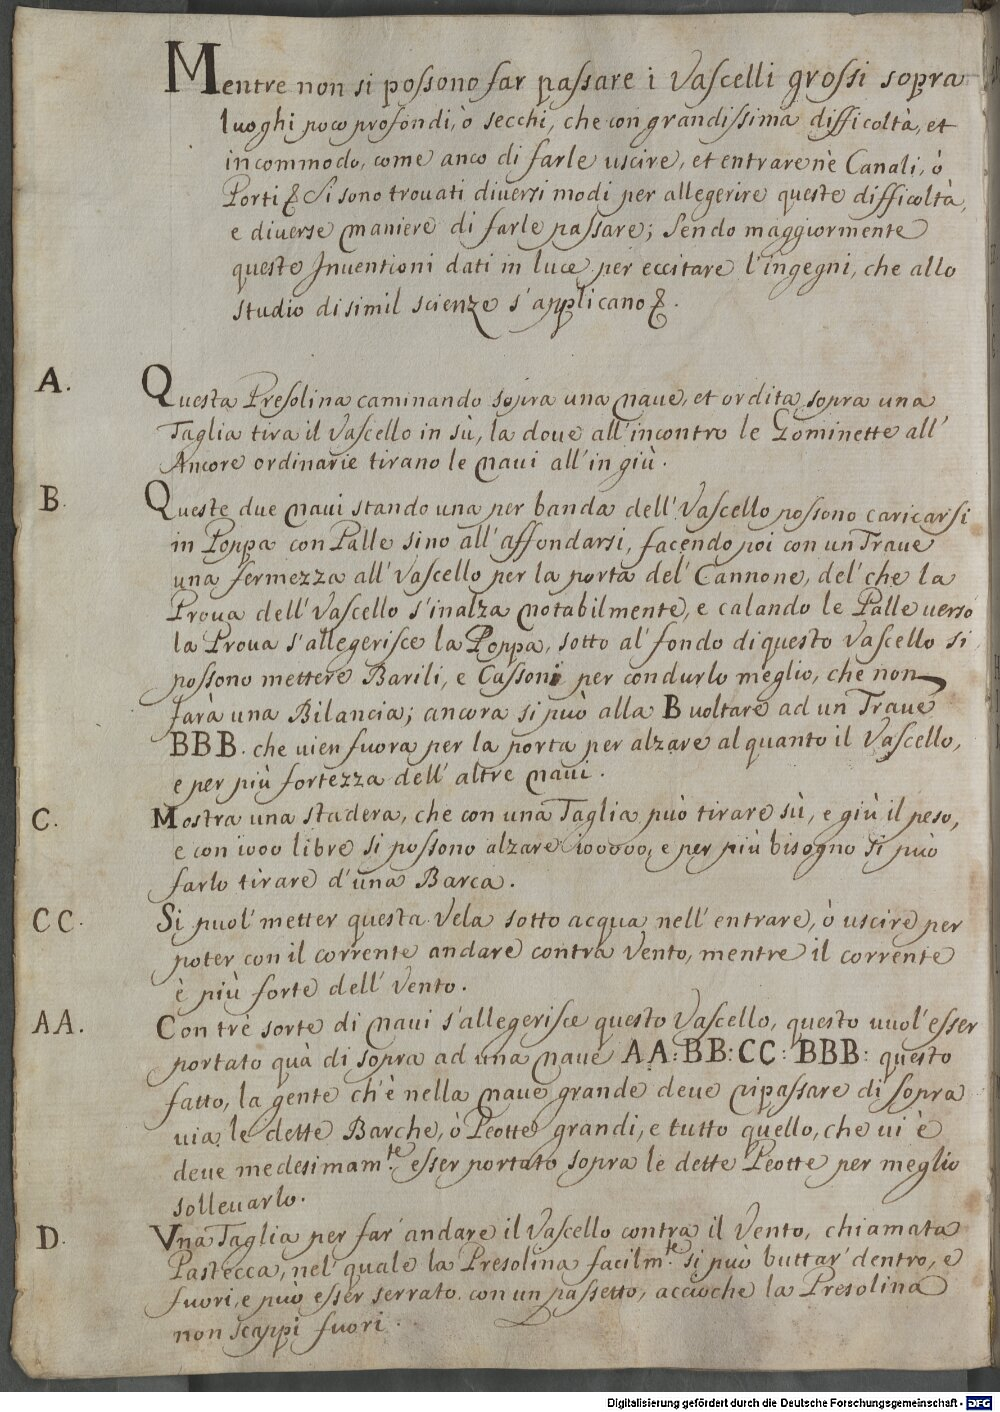 Mentre non si possono far passare i Vascelli grossi sopra
luoghi poco profondi, ò secchi, che con grandissima difficoltà, et
incommodo, come anco di farle uscire, et entrare nè Canali, ò
Porti & Si sono trovati diversi modi per allegerire queste difficoltà,
e diverse maniere di farle passare; Sendo maggiormente
queste Inventioni dati in luce per eccitare l'ingegni, che allo
studio di simil scienze s'applicano &.
A. Questa Presolina caminando sopra una nave, et ordita sopra una
Taglia tira il Vascello in sù, la dove all'incontro le Gominette all'
Ancore ordinarie tirano le navi all'in giù.
B. Queste due navi stando una per banda dell'Vascello possono caricarsi
in Poppa con Palle sino all'affondarsi, facendo poi con un Traue
una fermezza all'Vascello per la porta del'Cannone, del'che la
Proua dell'Vascello s'inalza notabilmente, e calando le Palle uerso
la Proua s'allegerisce la Poppa, sotto al'fondo di questo Vascello si
possono mettere Barili, e Cassoni per condurlo meglio, che non
farà una Bilancia; ancora si può alla B uoltare ad un Traue
BBB. che uien fuora per la porta per alzare al quanto il Vascello,
e per più fortezza dell'altre naui.
C. Mostra una stadera, che con una Taglia può tirare sù, e giù il peso,
e con 1000 libre si possono alzare 100000, e per più bisogno si può
farlo tirare d'una Barca.
CC. Si puol'metter questa Vela sotto acqua nell'entrare, ò uscire per
poter con il corrente andare contra Vento, mentre il corrente
è più forte dell'Vento.
AA. Con trè sorte di naui s'allegerisce questo Vascello, questo uuol'esser
portato quà di sopra ad una naue AA: BB: CC: BBB: questo
fatto, la gente ch'è nella naue grande deue ripassare di sopra
uia le dette Barche, ò Peotte grandi, e tutto quello, che ui è
deue medesimam.te esser portato sopra le dette Peotte per meglio
solleuarlo.
D. Vna Taglia per far'andare il Vascello contra il Vento, chiamata
Pastecca, nel'quale la Presolina facilm.te si può buttar'dentro, e
fuori, e può esser serrato con un passetto, accioche la Presolina
non scappi fuori.
Digitalisierung gefördert durch die Deutsche Forschungsgemeinschaft - DFG